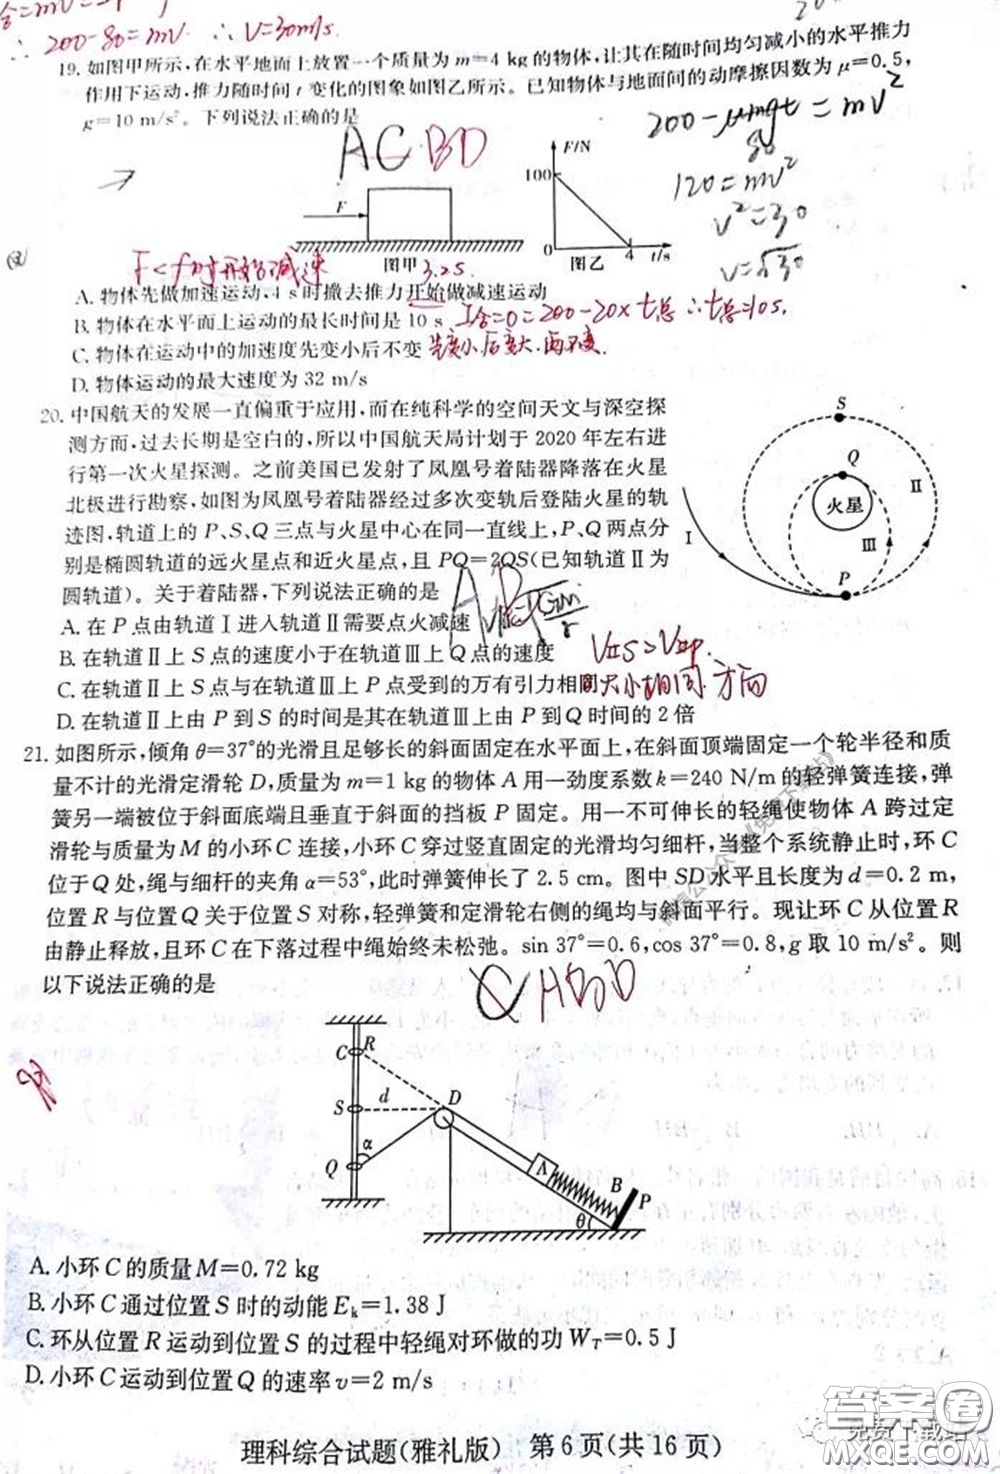 ∴ 200-80=mv ∴ V=30m/s.
19. 如图甲所示,在水平地面上放置一个质量为 m=4 kg 的物体,让其在随时间均匀减小的水平推力
作用下运动,推力随时间 t 变化的图象如图乙所示。已知物体与地面间的动摩擦因数为 μ=0.5,
g=10 m/s²。下列说法正确的是
AC BD
200-μmgt=mv²
80
120=mv²
v²=30
v=√30
F
图甲
F/N
100
4
t/s
图乙
F<f时开始减速
3.2s
A. 物体先做加速运动,4 s 时撤去推力开始做减速运动
B. 物体在水平面上运动的最长时间是 10 s
I合=0=200-20×t总 ∴t总=10s.
C. 物体在运动中的加速度先变小后不变
先变小后变大.再不变.
D. 物体运动的最大速度为 32 m/s
20. 中国航天的发展一直偏重于应用,而在纯科学的空间天文与深空探
测方面,过去长期是空白的,所以中国航天局计划于 2020 年左右进
行第一次火星探测。之前美国已发射了凤凰号着陆器降落在火星
北极进行勘察,如图为凤凰号着陆器经过多次变轨后登陆火星的轨
迹图,轨道上的 P、S、Q 三点与火星中心在同一直线上,P、Q 两点分
别是椭圆轨道的远火星点和近火星点,且 PQ=2QS(已知轨道Ⅱ为
圆轨道)。关于着陆器,下列说法正确的是
S
Q
火星
Ⅰ
Ⅱ
Ⅲ
P
A. 在 P 点由轨道Ⅰ进入轨道Ⅱ需要点火减速
B. 在轨道Ⅱ上 S 点的速度小于在轨道Ⅲ上 Q 点的速度
C. 在轨道Ⅱ上 S 点与在轨道Ⅲ上 P 点受到的万有引力相同
大小相同.方向
D. 在轨道Ⅱ上由 P 到 S 的时间是其在轨道Ⅲ上由 P 到 Q 时间的 2 倍
21. 如图所示,倾角 θ=37°的光滑且足够长的斜面固定在水平面上,在斜面顶端固定一个轮半径和质
量不计的光滑定滑轮 D,质量为 m=1 kg 的物体 A 用一劲度系数 k=240 N/m 的轻弹簧连接,弹
簧另一端被位于斜面底端且垂直于斜面的挡板 P 固定。用一不可伸长的轻绳使物体 A 跨过定
滑轮与质量为 M 的小环 C 连接,小环 C 穿过竖直固定的光滑均匀细杆,当整个系统静止时,环 C
位于 Q 处,绳与细杆的夹角 α=53°,此时弹簧伸长了 2.5 cm。图中 SD 水平且长度为 d=0.2 m,
位置 R 与位置 Q 关于位置 S 对称,轻弹簧和定滑轮右侧的绳均与斜面平行。现让环 C 从位置 R
由静止释放,且环 C 在下落过程中绳始终未松弛。sin 37°=0.6,cos 37°=0.8,g 取 10 m/s²。则
以下说法正确的是
ABD
C
R
S
d
D
Q
α
A
B
P
θ
A. 小环 C 的质量 M=0.72 kg
B. 小环 C 通过位置 S 时的动能 Eₖ=1.38 J
C. 环从位置 R 运动到位置 S 的过程中轻绳对环做的功 W_T=0.5 J
D. 小环 C 运动到位置 Q 的速率 v=2 m/s
理科综合试题(雅礼版) 第 6 页(共 16 页)
答案圈
MXQE.COM